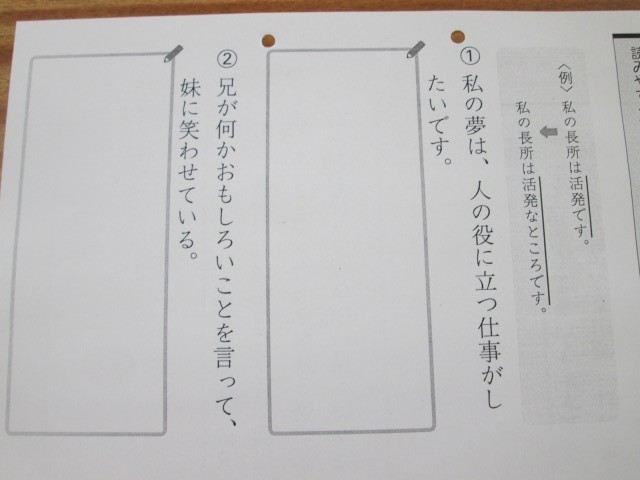 読みやす
〈例〉私の長所は活発です。
私の長所は活発なところです。
① 私の夢は、人の役に立つ仕事がし
たいです。
② 兄が何かおもしろいことを言って、
妹に笑わせている。